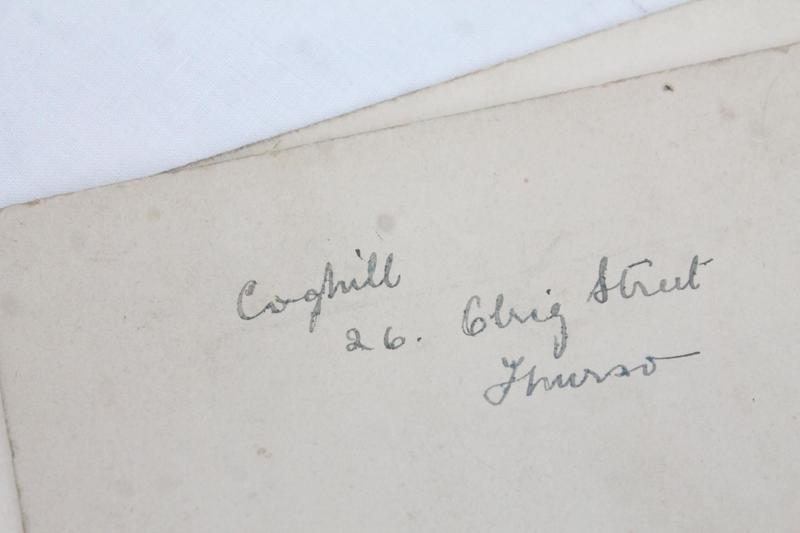 Coghill
26. Olrig Street
Thurso